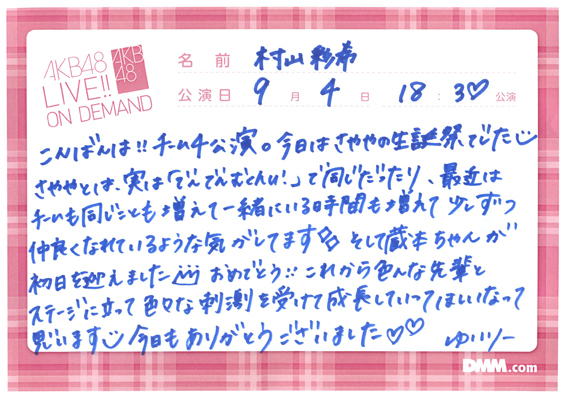 AKB48
LIVE!!
ON DEMAND
AKB
48
名前 村山彩希
公演日 9月4日 18:30公演
こんばんは!!チーム4公演。今日はさややの生誕祭でした
さややとは、実は「でんでんむくんい!」で同じだったり、最近は
チームも同じことも増えて一緒にいる時間も増えて少しずつ
仲良くなれているような気がしてます そして蔵本ちゃんが
初日を迎えました おめでとう!!これから色んな先輩と
ステージに立って色々な刺激を受けて成長していってほしいなって
思います 今日もありがとうございました♡♡ ゆいりー
DMM.com